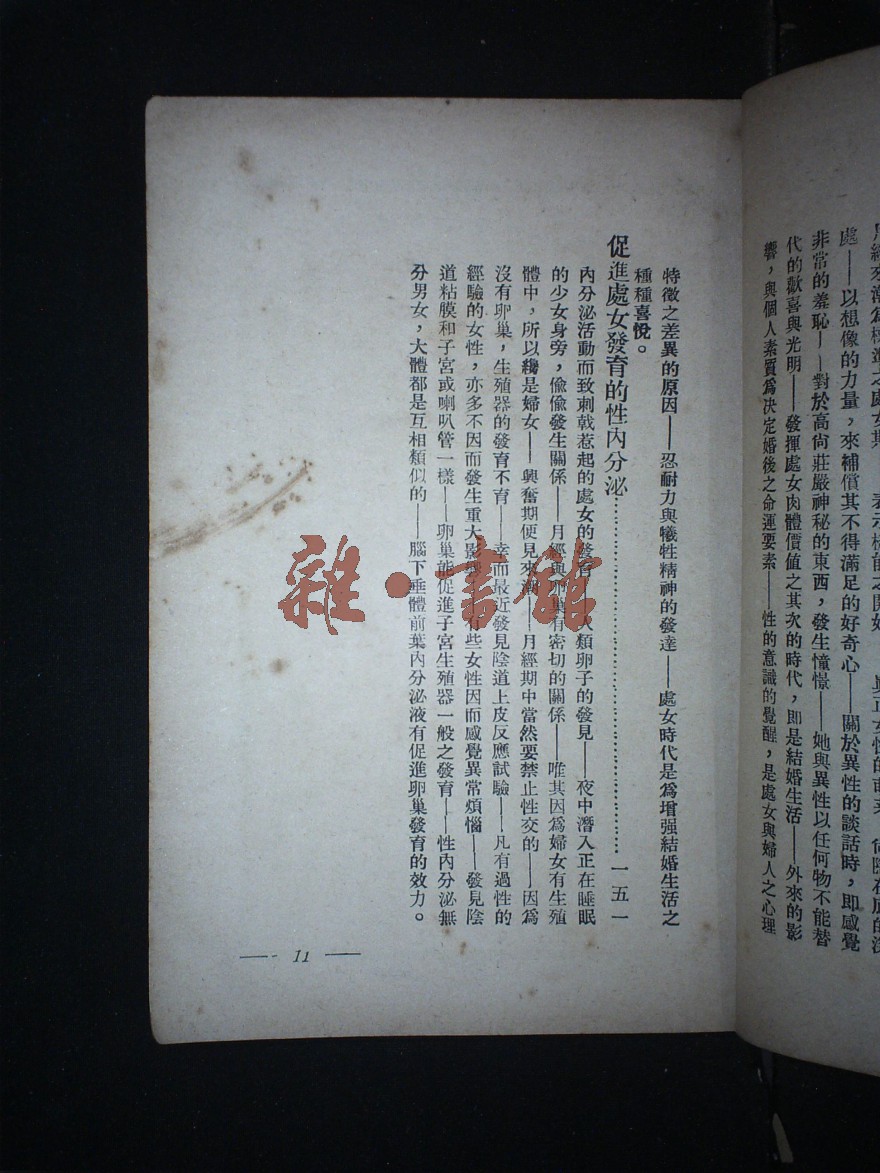 處——以想像的力量，來補償其不得滿足的好奇心——關於異性的談話時，即感覺
非常的羞恥——對於高尚莊嚴神秘的東西，發生憧憬——她與異性以任何物不能替
代的歡喜與光明——發揮處女肉體價值之其次的時代，即是結婚生活——外來的影
響，與個人素質爲決定婚後之命運要素——性的意識的覺醒，是處女與婦人之心理
特徵之差異的原因——忍耐力與犧牲精神的發達——處女時代是爲增强結婚生活之
種種喜悅。
促進處女發育的性內分泌…………一五一
內分泌活動而致刺戟惹起的處女的發育——人類卵子的發見——夜中潛入正在睡眠
的少女身旁，偷偷發生關係——月經與卵巢有密切的關係——唯其因爲婦女有生殖
體中，所以纔是婦女——興奮期便見來潮——月經期中當然要禁止性交的——因爲
沒有卵巢，生殖器的發育不育——幸而最近發見陰道上皮反應試驗——凡有過性的
經驗的女性，亦多不因而發生重大影響——有些女性因而感覺異常煩惱——發見陰
道粘膜和子宮或喇叭管一樣——卵巢能促進子宮生殖器一般之發育——性內分泌無
分男女，大體都是互相類似的——腦下垂體前葉內分泌液有促進卵巢發育的效力。
— 11 —
雜·書館